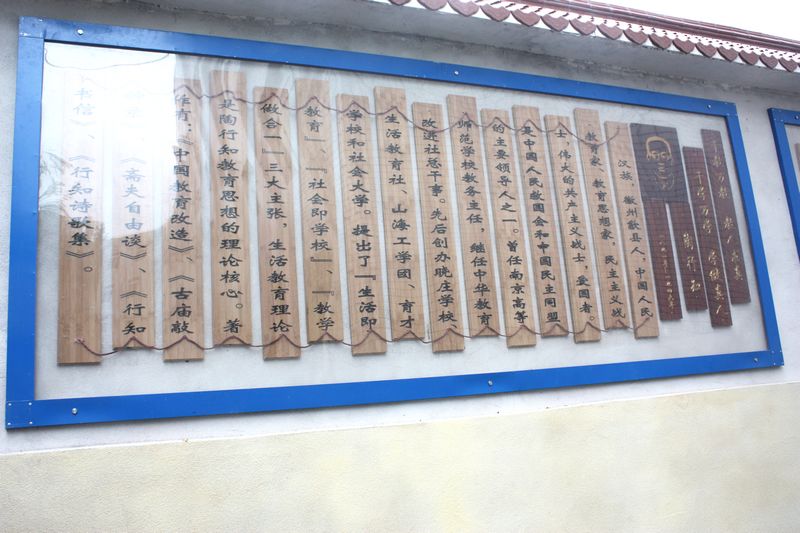 千教万教 教人求真
千学万学 学做真人
陶行知
汉族，徽州歙县人，中国人民
教育家、教育思想家，民主主义战
士，伟大的共产主义战士，爱国者。
是中国人民救国会和中国民主同盟
的主要领导人之一。曾任南京高等
师范学校教务主任，继任中华教育
改进社总干事。先后创办晓庄学校、
生活教育社、山海工学团、育才
学校和社会大学。提出了『生活即
教育』、『社会即学校』、『教学
做合一』三大主张，生活教育理论
是陶行知教育思想的理论核心。著
作有：《中国教育改造》、《古庙敲
《斋夫自由谈》、《行知
书信》、《行知诗歌集》。